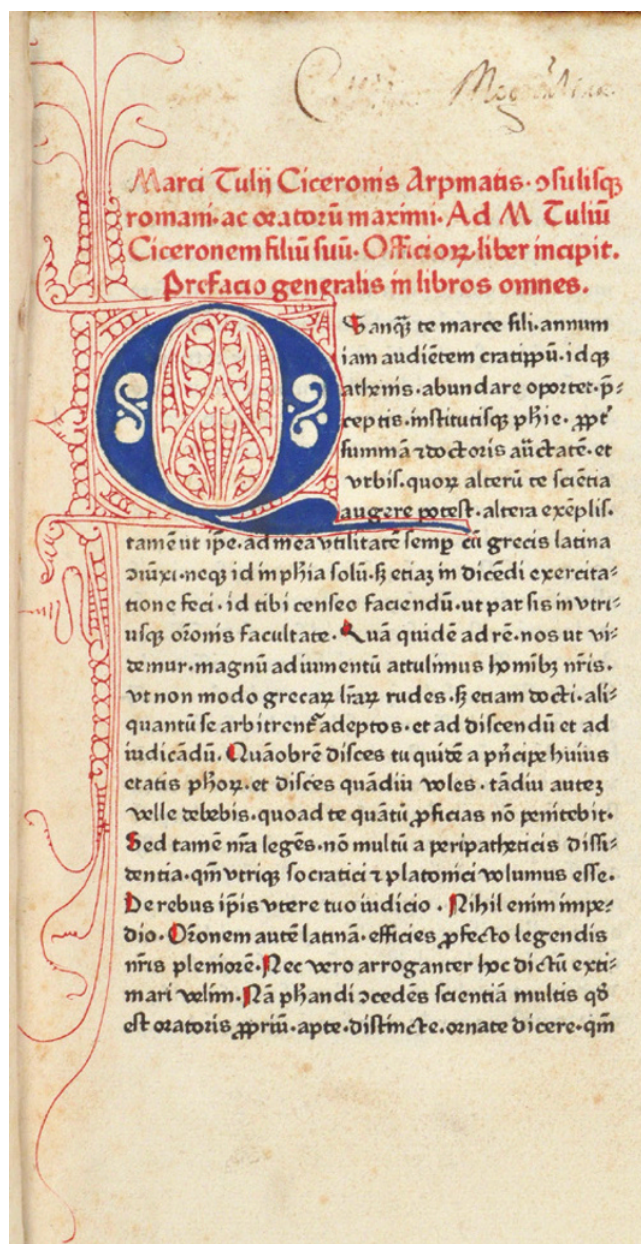 Marci Tulij Ciceronis Arpmatis· ↄsulisqꝫ
romani· ac oratorū maximi· Ad M Tuliū
Ciceronem filiū suū· Officioꝝ liber incipit.
Prefacio generalis in libros omnes.
Q Uanqꝫ̄ te marce fili· annum
iam audiētem cratippū· idqꝫ
athenis· abundare oportet· p̄⸗
ceptis· institutisqꝫ phie· ꝓpt᷑
summā ⁊ doctoris auctatē· et
vrbis· quoꝝ alterū te sciētia
augere potest· altera exēplis·
tamē ut ip̄e· ad meā vtilitatē semꝑ cū grecis latina
ↄiūxi· neqꝫ id in phia solū· sꝫ etiaꝫ in dicēdi exercita⸗
tione feci· id tibi censeo faciendū· ut par sis in vtri⸗
usqꝫ or̄onis facultate· Quā quidē ad rē· nos ut vi⸗
demur· magnū adiumentū attulimus hominibꝫ nr̄is·
vt non modo grecaꝝ lr̄aꝝ rudes· sꝫ etiam docti· ali⸗
quantū se arbitrent᷑ adeptos· et ad discendū et ad
iudicādū· Quāobrē disces tu quidē a pn̄cipe huius
etatis phoꝝ· et disces quādiu voles· tādiu auteꝫ
velle debebis· quoad te quātū ꝓficias nō penitebit·
Sed tamē nr̄a legēs· nō multū a peripatheticis dissi⸗
dentia· qm̄ vtriqꝫ socratici ⁊ platonici volumus esse·
De rebus ip̄is vtere tuo iudicio· Nihil enim impe⸗
dio· Or̄onem autē latinā· efficies ꝓfecto legendis
nr̄is pleniorē· Nec vero arroganter hoc dictū exti⸗
mari velim· Nā phandi ↄcedēs scientiā multis qd̄
est oratoris ꝓpriū· apte· distincte· ornate dicere· qm̄